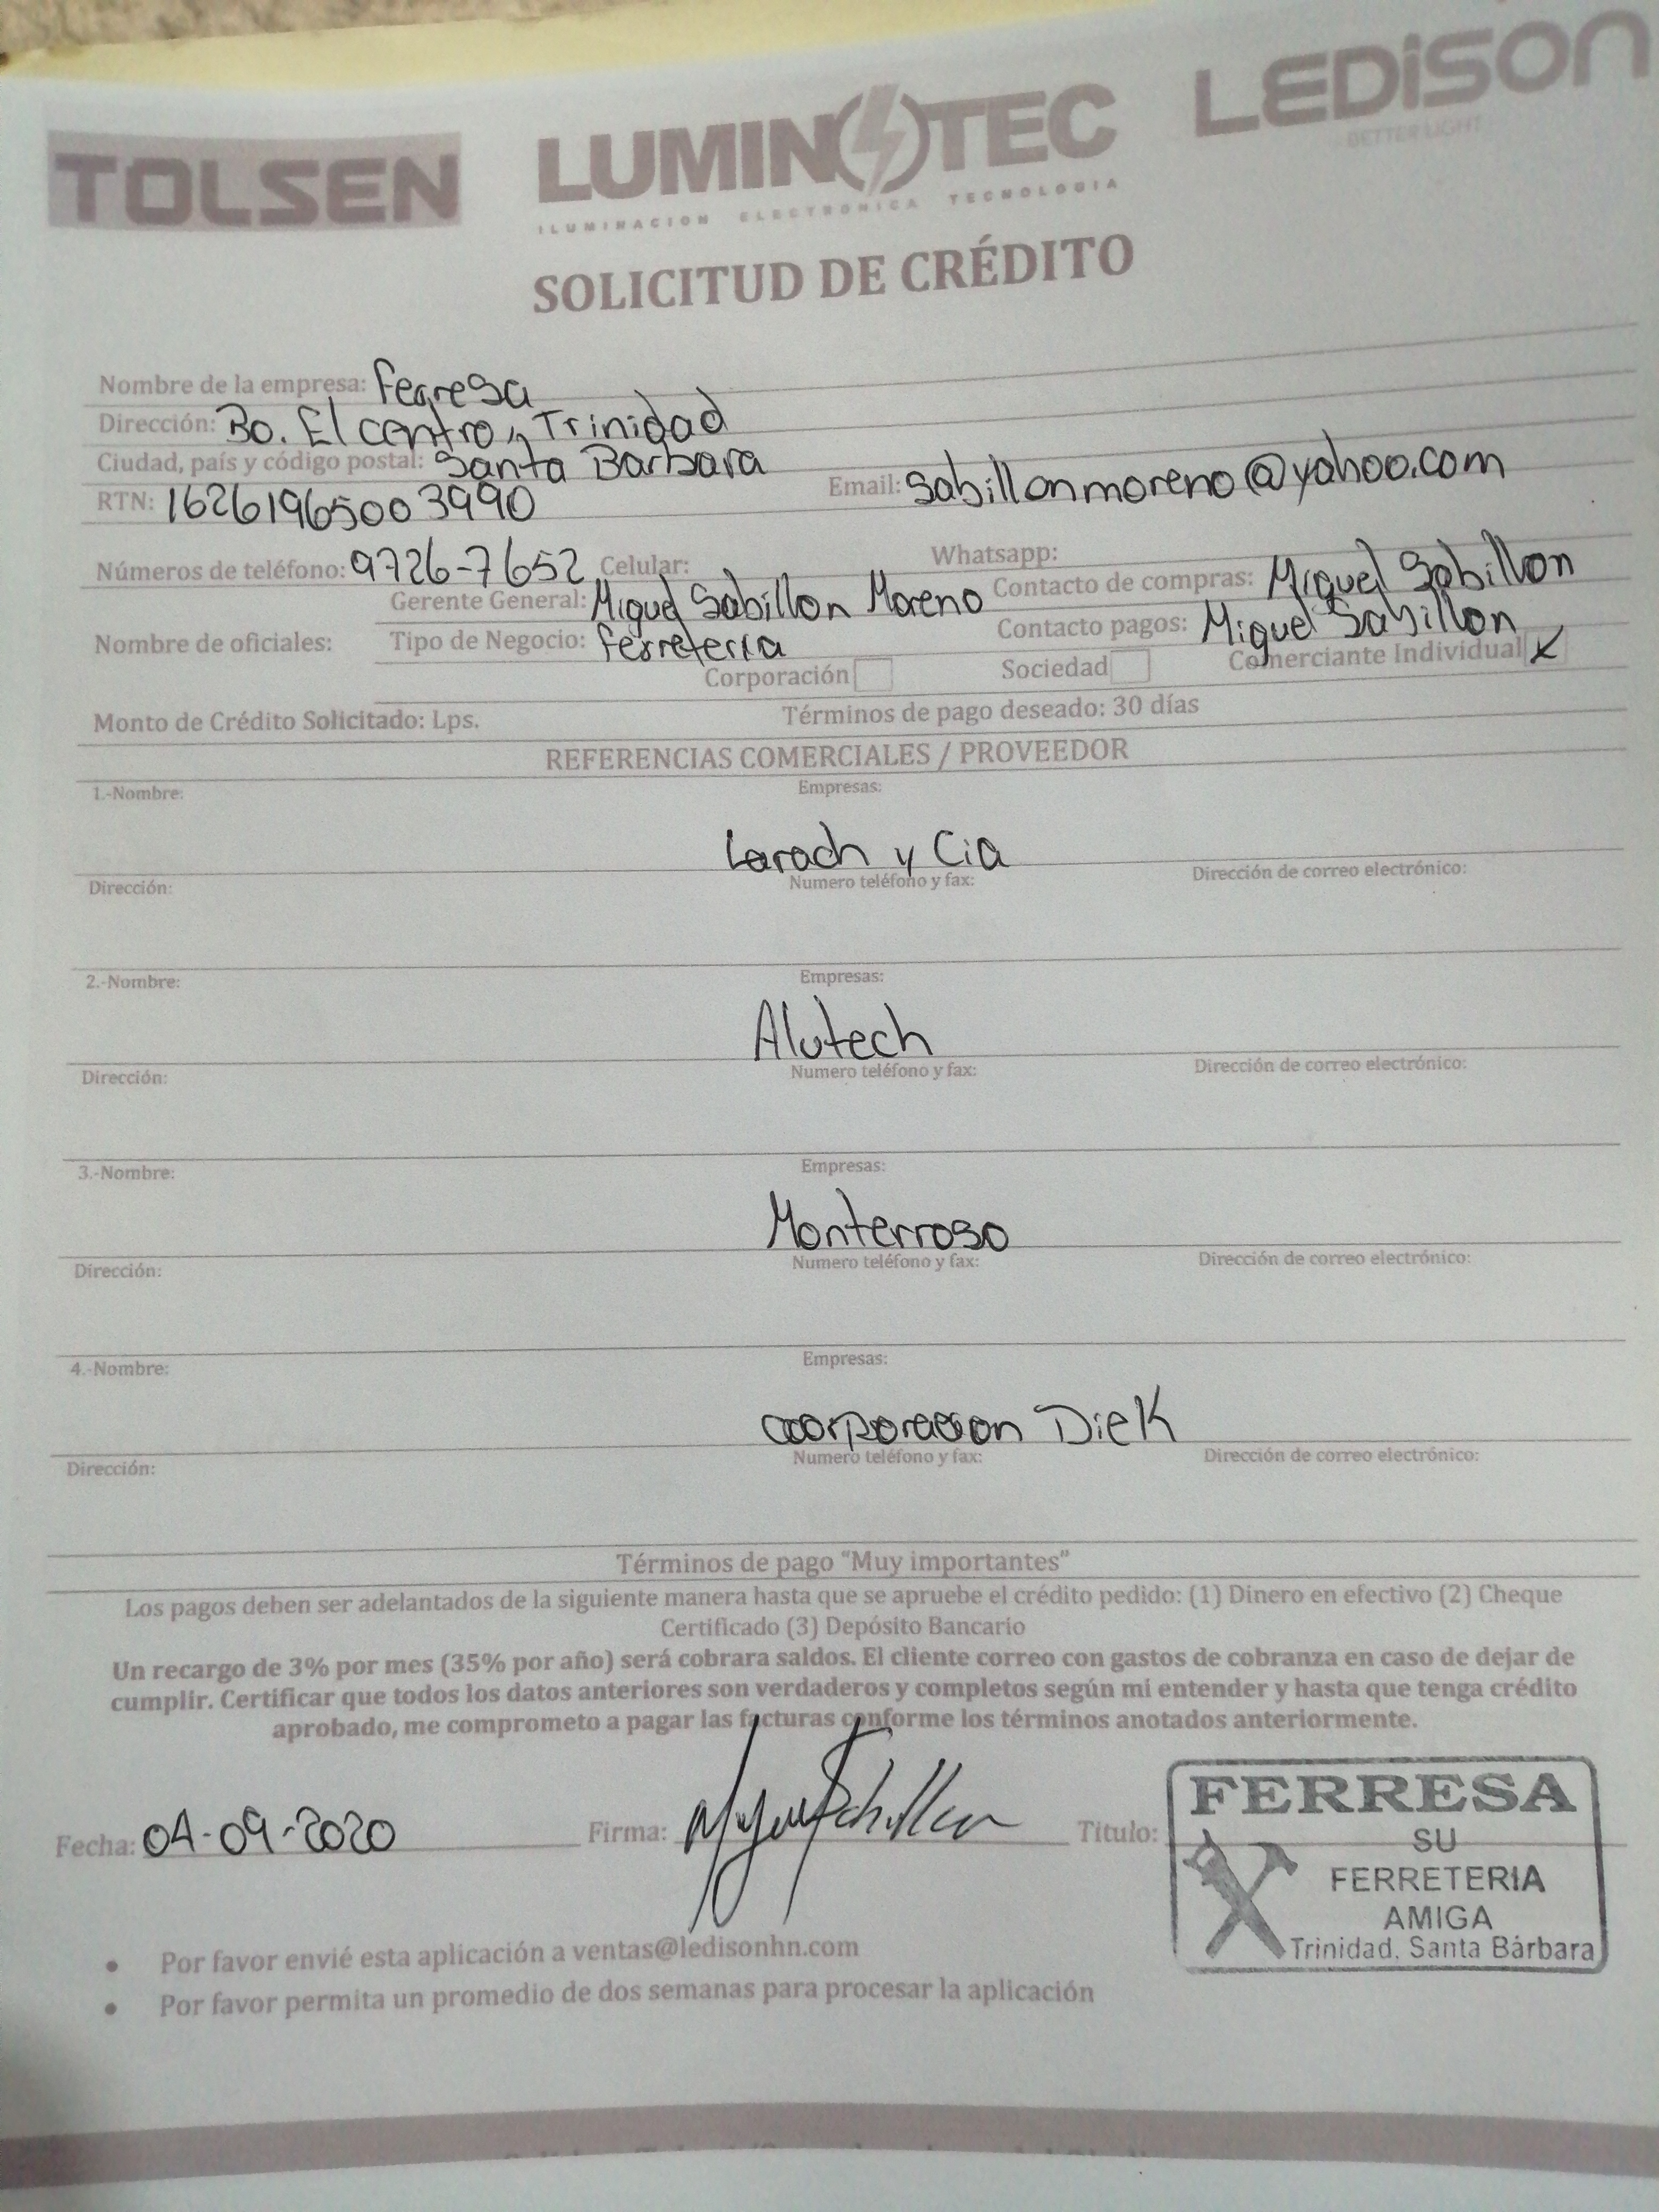 TOLSEN LUMINOTEC LEDiSON
ILUMINACION ELECTRONICA TECNOLOGIA BETTER LIGHT
SOLICITUD DE CRÉDITO
Nombre de la empresa: Ferresa
Dirección: Bo. El centro, Trinidad
Ciudad, país y código postal: Santa Barbara
RTN: 16261965003990 Email: sabillonmoreno@yahoo.com
Números de teléfono: 9726-7652 Celular: Whatsapp:
Gerente General: Miguel Sabillon Moreno Contacto de compras: Miguel Sabillon
Nombre de oficiales: Tipo de Negocio: ferreteria Contacto pagos: Miguel Sabillon
Corporación Sociedad Comerciante Individual
Monto de Crédito Solicitado: Lps. Términos de pago deseado: 30 días
REFERENCIAS COMERCIALES / PROVEEDOR
1.-Nombre: Empresas:
Larach y Cia
Dirección: Numero teléfono y fax: Dirección de correo electrónico:
2.-Nombre: Empresas:
Alutech
Dirección: Numero teléfono y fax: Dirección de correo electrónico:
3.-Nombre: Empresas:
Monterroso
Dirección: Numero teléfono y fax: Dirección de correo electrónico:
4.-Nombre: Empresas:
corporacion Diek
Dirección: Numero teléfono y fax: Dirección de correo electrónico:
Términos de pago “Muy importantes”
Los pagos deben ser adelantados de la siguiente manera hasta que se apruebe el crédito pedido: (1) Dinero en efectivo (2) Cheque
Certificado (3) Depósito Bancario
Un recargo de 3% por mes (35% por año) será cobrara saldos. El cliente correo con gastos de cobranza en caso de dejar de
cumplir. Certificar que todos los datos anteriores son verdaderos y completos según mi entender y hasta que tenga crédito
aprobado, me comprometo a pagar las facturas conforme los términos anotados anteriormente.
Fecha: 04-09-2020 Firma: Miguel Sabillon Titulo:
FERRESA
SU
FERRETERIA
AMIGA
Trinidad, Santa Bárbara
• Por favor envié esta aplicación a ventas@ledisonhn.com
• Por favor permita un promedio de dos semanas para procesar la aplicación